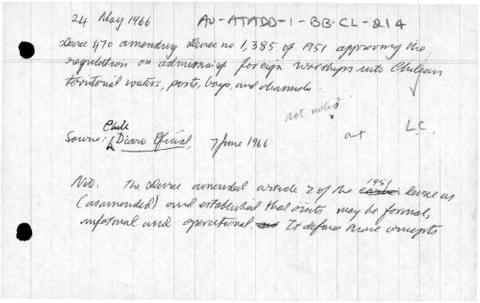 24 May 1966 AU-ATADD-1-BB-CL-214
Decree 470 amending Decree no 1,385 of 1951 approving the
regulation on admission of foreign warships into Chilean
territorial waters, ports, bays, and channels
not noted
out L.C.
Chile
Source: Diario Oficial, 7 June 1966
Note. The decree amended article 2 of the 1951 decree as
(as amended) and established that visits may be formal,
informal and operational. It defines these concepts